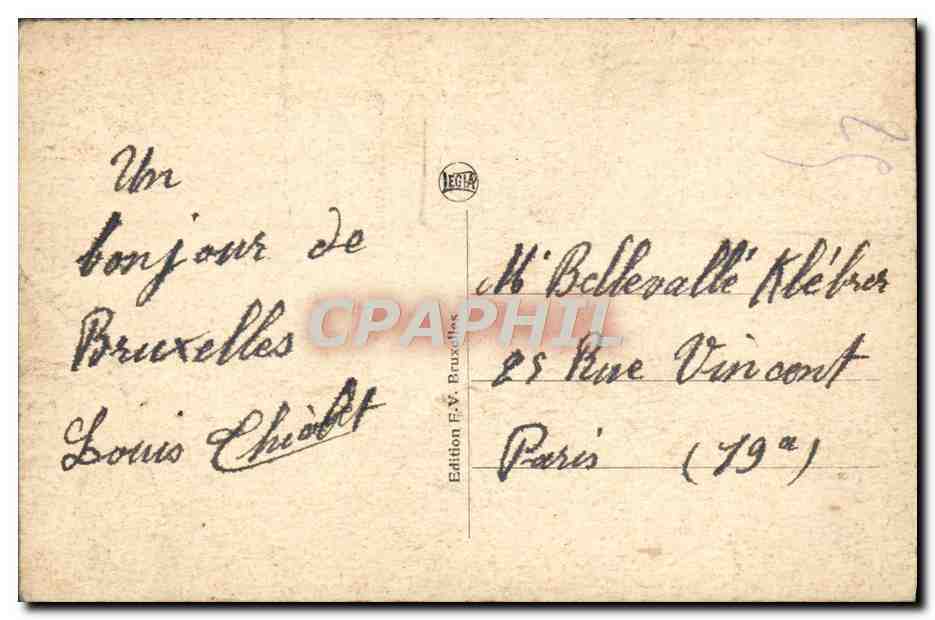 Un
bonjour de
Bruxelles
Louis
LEGIA
Edition F. V. Bruxelles
CPAPHIL
Mr Bellevallé Klébrer
25 Rue Vincent
Paris (19e)